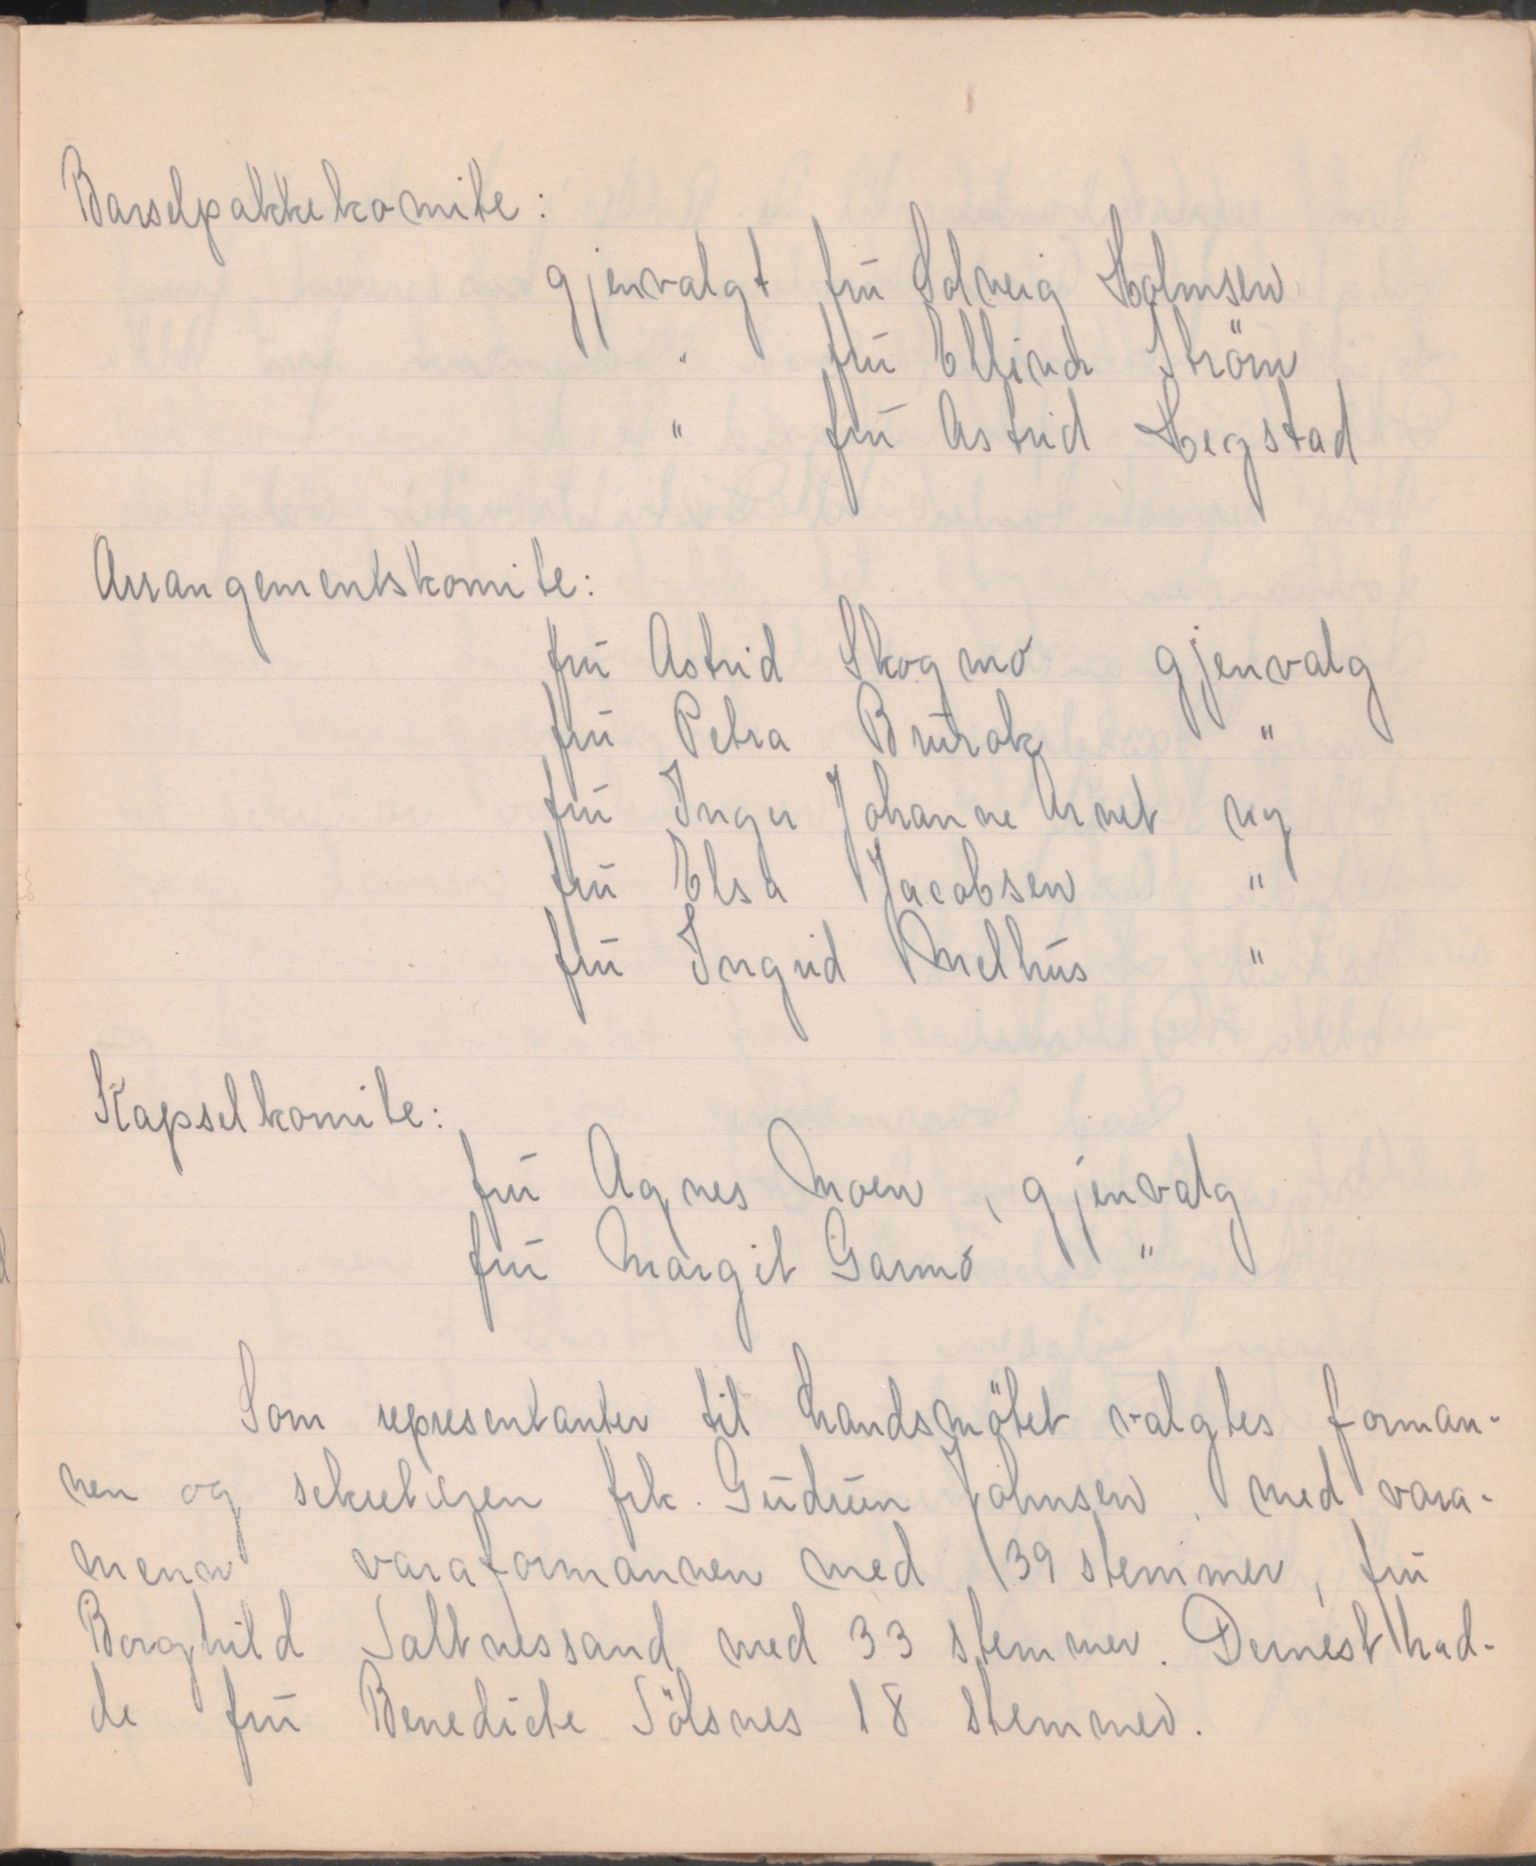 Barselpakkekomite:
gjenvalgt fru Solveig Holmsen
" fru Ellinor Ström
" fru Astrid Hegstad
Arrangementskomite:
fru Astrid Skogmo gjenvalg
fru Petra Brurok "
fru Inger Johanne Arnet ny
fru Elsa Jacobsen "
fru Ingrid Melhus "
Kapselkomite:
fru Agnes Moen, gjenvalg
fru Margit Garmo "
Som representanter til landsmötet valgtes forman-
nen og sekretæren frk. Gudrun Johnsen, med vara-
menn varaformannen med 39 stemmer, fru
Borghild Saltnessand med 33 stemmer. Dernest had-
de fru Benedicte Sölsnes 18 stemmer.